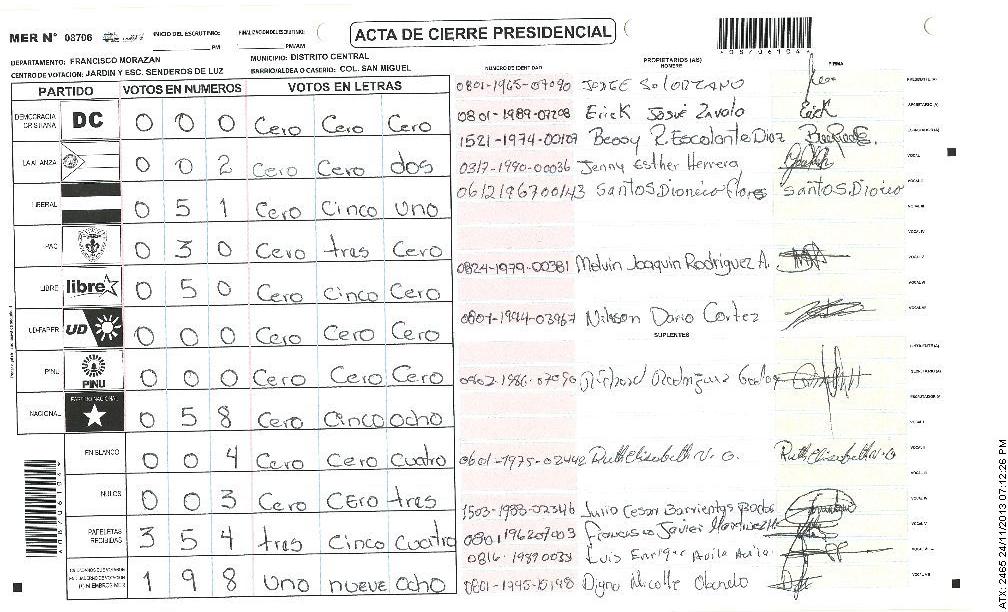 MER N° 08706 INICIO DEL ESCRUTINIO: PM FINALIZACION DEL ESCRUTINIO: PM/AM ACTA DE CIERRE PRESIDENCIAL
DEPARTAMENTO: FRANCISCO MORAZAN MUNICIPIO: DISTRITO CENTRAL
CENTRO DE VOTACION: JARDIN Y ESC. SENDEROS DE LUZ BARRIO/ALDEA O CASERIO: COL. SAN MIGUEL
NUMERO DE IDENTIDAD PROPIETARIOS (AS) NOMBRE FIRMA
PARTIDO VOTOS EN NUMEROS VOTOS EN LETRAS
DEMOCRACIA CRISTIANA DC 0 0 0 Cero Cero Cero
LA ALIANZA 0 0 2 Cero Cero dos
LIBERAL 0 5 1 Cero Cinco uno
PAC 0 3 0 Cero tres Cero
LIBRE libre 0 5 0 Cero Cinco Cero
UD-FAPER UD 0 0 0 Cero Cero Cero
PINU PINU 0 0 0 Cero Cero Cero
NACIONAL PARTIDO NACIONAL 0 5 8 Cero Cinco ocho
EN BLANCO 0 0 4 Cero Cero cuatro
NULOS 0 0 3 Cero CEro tres
PAPELETAS RECIBIDAS 3 5 4 tres Cinco Cuatro
1 9 8 uno nueve ocho
0801-1965-07090 JORGE SOLORZANO
0801-1989-07208 Erick Josué Zavala Erick
1521-1974-00109 Bessy R. Escalante Diaz
0317-1990-00036 Jenny Esther Herrera
0612196700143 Santos Dionicio Flores Santos Dionico
0824-1979-00381 Melvin Joaquin Rodriguez A.
0801-1994-03967 Nilsson Dario Cortez
SUPLENTES
0601-1975-02442 Ruth Elisabeth V. G. Ruth Elisabeth V. G
1503-1983-02346 Julio Cesar Barrientos
0801196207003 Francisco Javier Martinez
0816-1989 Luis Enrique Avila Avila
Digna Nicolle Obando
08706104
ATX 2465 24/11/2013 07:12:26 PM